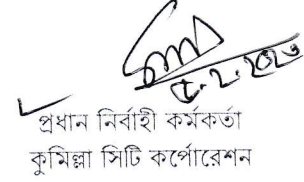 ৫.২.২০২৩
প্রধান নির্বাহী কর্মকর্তা
কুমিল্লা সিটি কর্পোরেশন